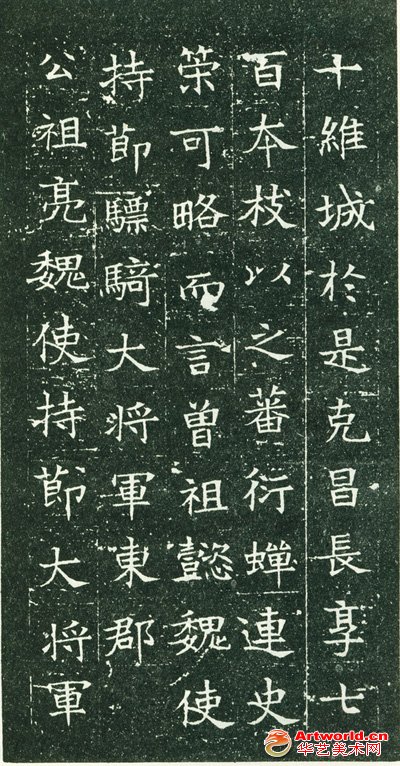 十維城於是克昌長享七
百本枝以之蕃衍蟬連史
策可略而言曾祖懿魏使
持節驃騎大将軍東郡
公祖亮魏使持節大将軍
Artworld.cn
华艺美术网